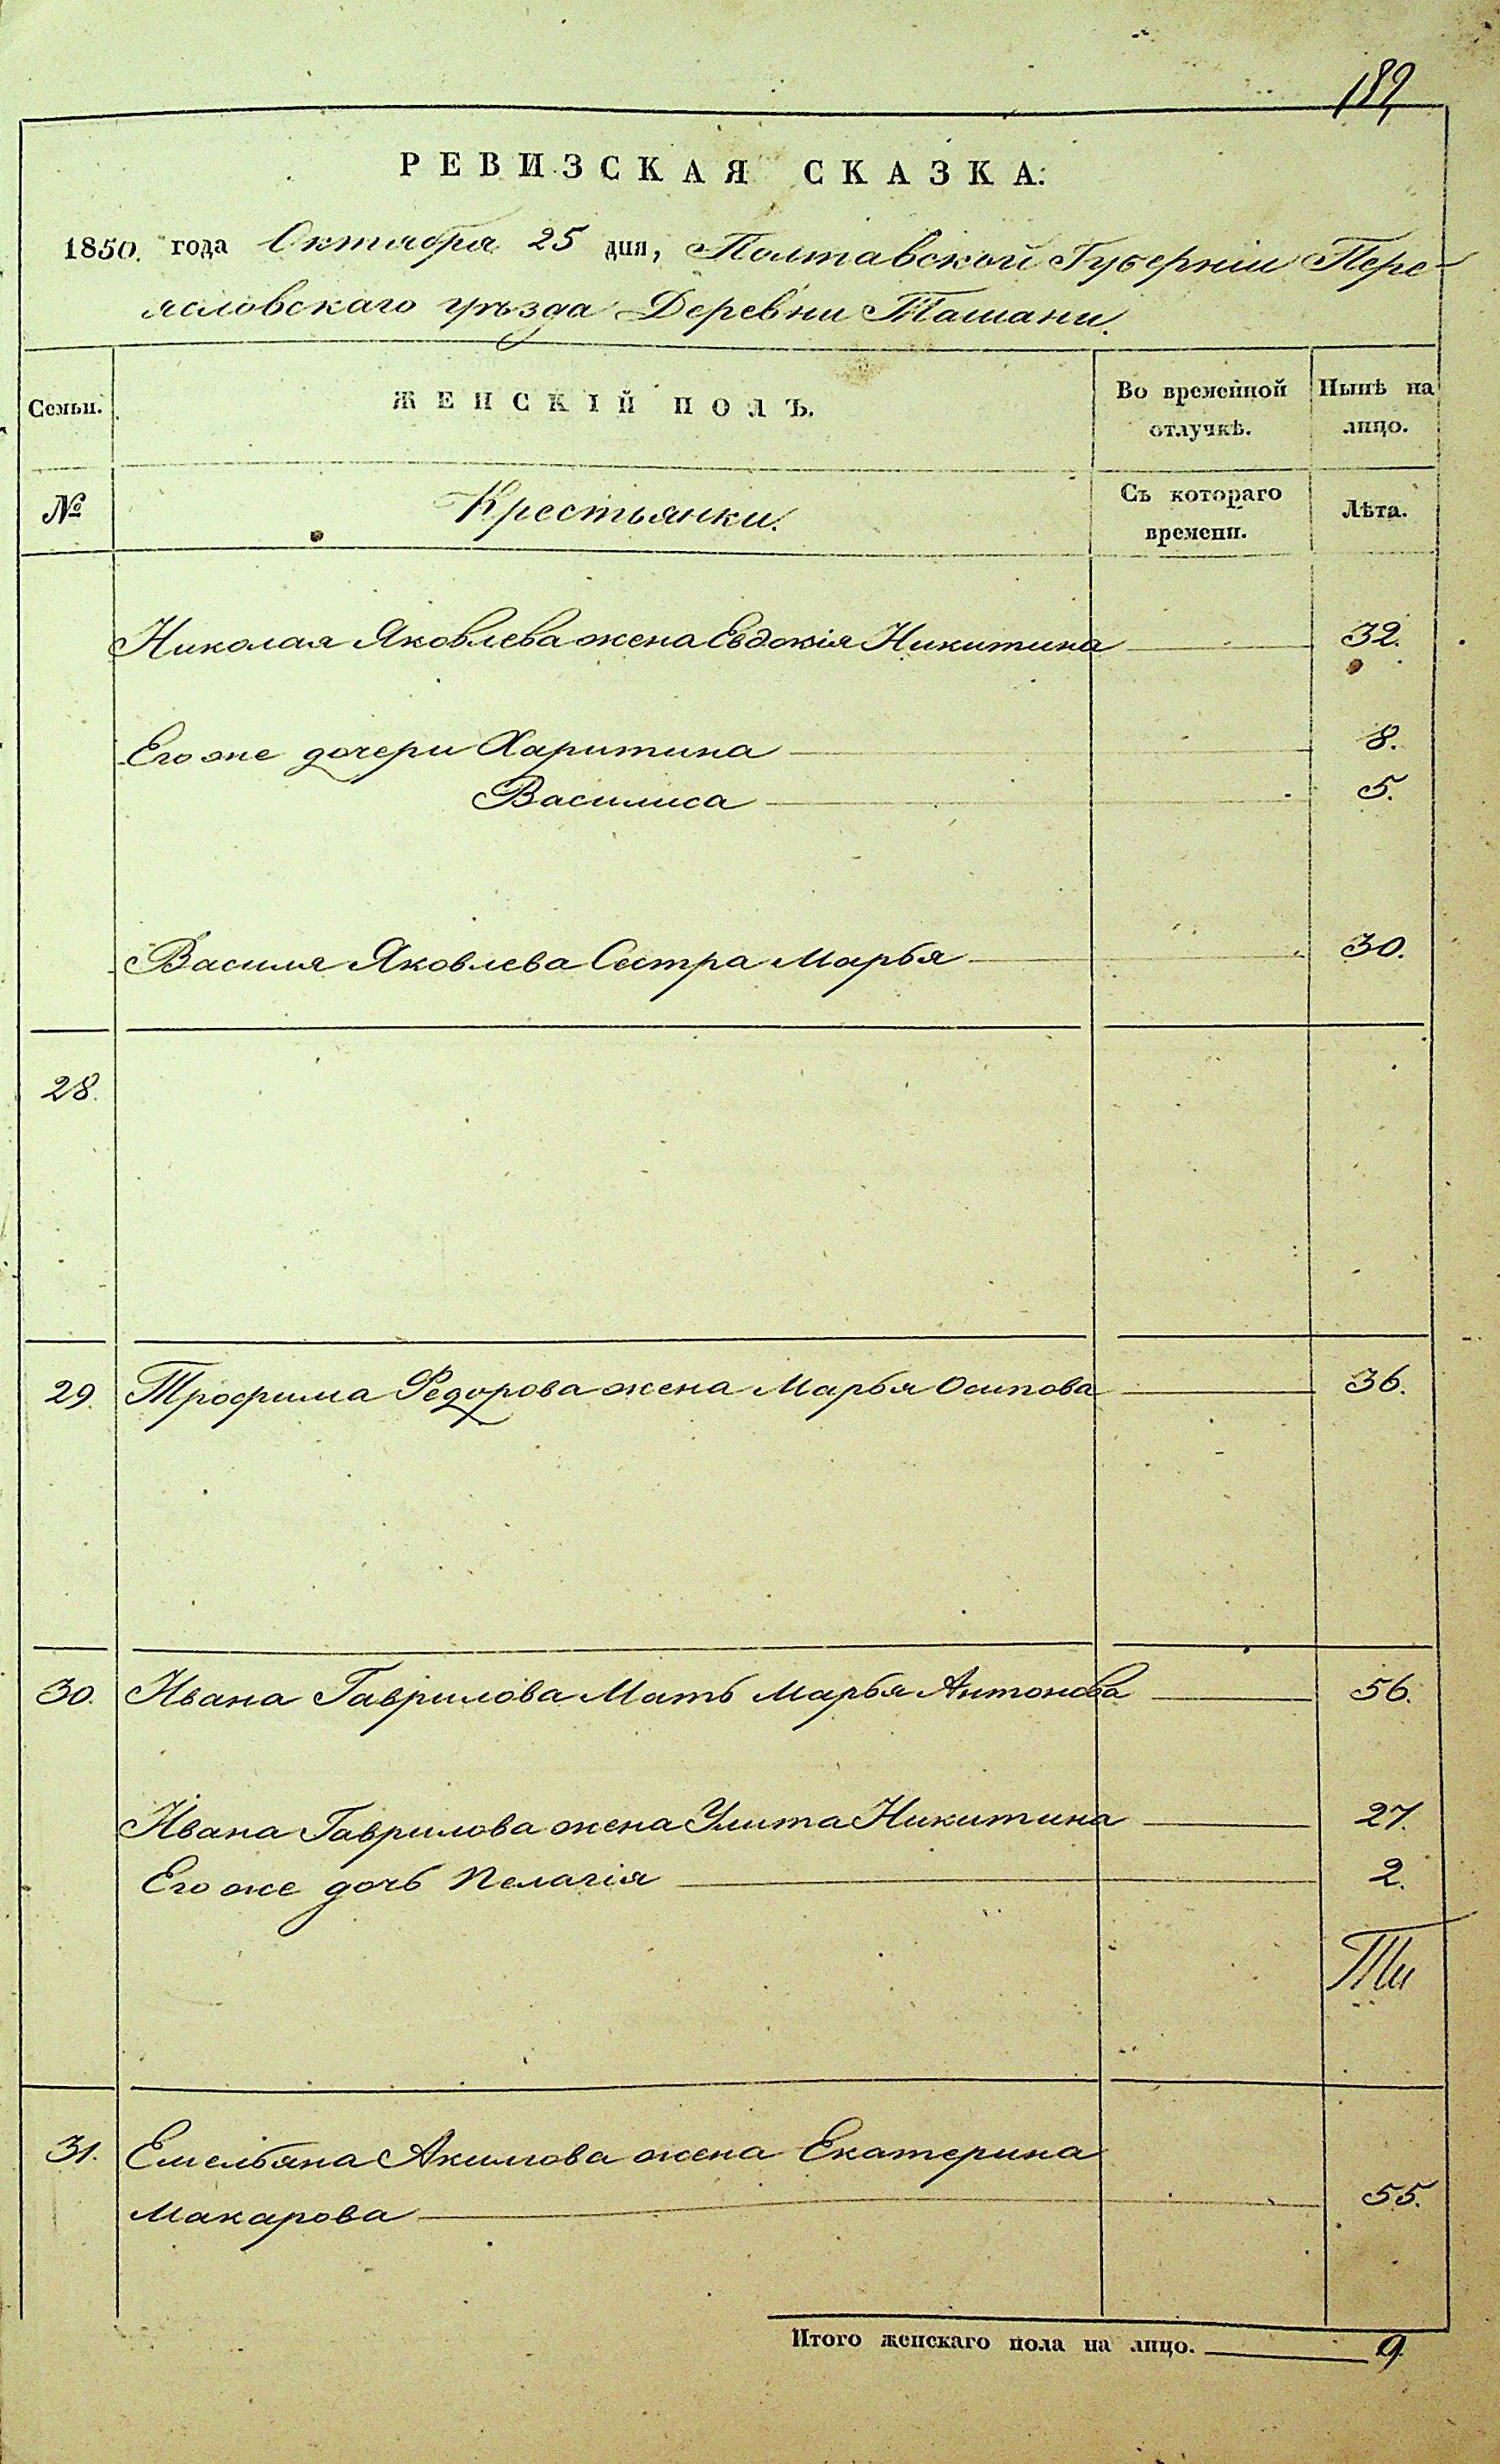 189
РЕВИЗСКАЯ СКАЗКА.
1850. года Октября 25 дня, Полтавской Губерніи Пере-
ясловскаго уѣзда Деревни Ташани.
Семьи.
ЖЕНСКІЙ ПОЛЪ.
Во временной отлучкѣ.
Нынѣ на лицо.
№
Крестьянки.
Съ котораго времени.
Лѣта.
Николая Яковлева жена Евдокія Никитина 32.
Его же дочери Харитина 8.
Василиса 5.
Василя Яковлева Сестра Марья 30.
28.
29. Трофима Федорова жена Марья Осипова 36.
30. Ивана Гаврилова Мать Марья Антонова 56.
Ивана Гаврилова жена Улита Никитина 27.
Его же дочь Пелагія 2.
31. Емельяна Акимова жена Екатерина
Макарова 55.
Итого женскаго пола на лицо. 9